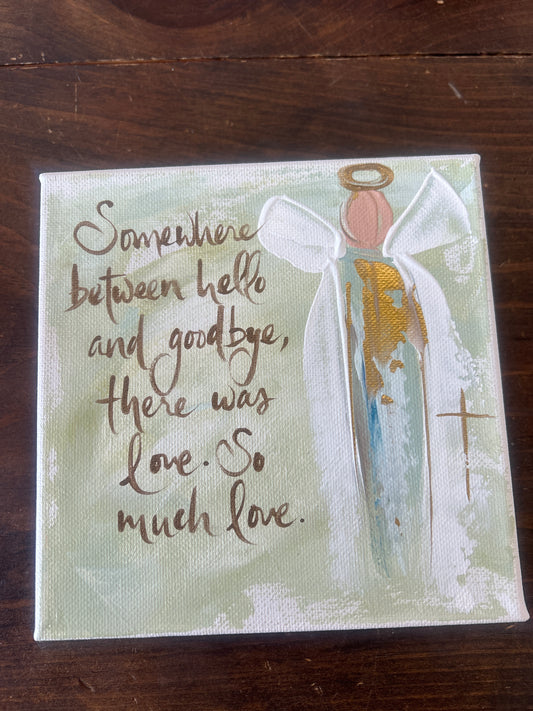 Somewhere
between hello
and goodbye,
there was
love. So
much love.